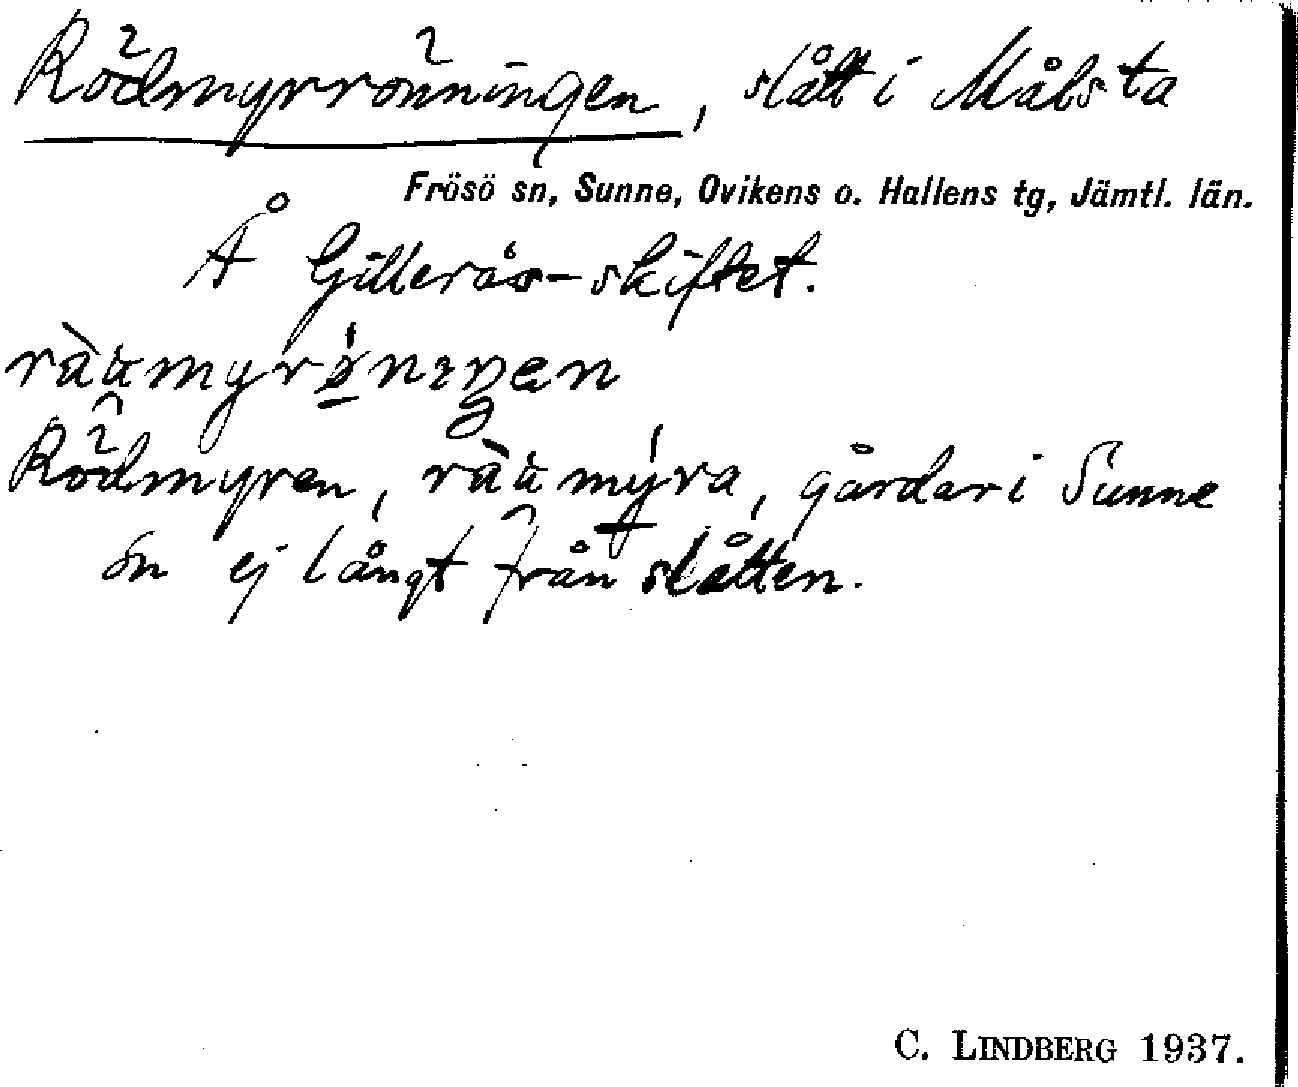 Rödmyrrönningen, slått i Målsta
Frösö sn, Sunne, Ovikens o. Hallens tg, Jämtl. län.
Å Gillerås-skiftet.
Rödmyren, gårdar i Sunne
sn ej långt från slåtten.
C. LINDBERG 1937.